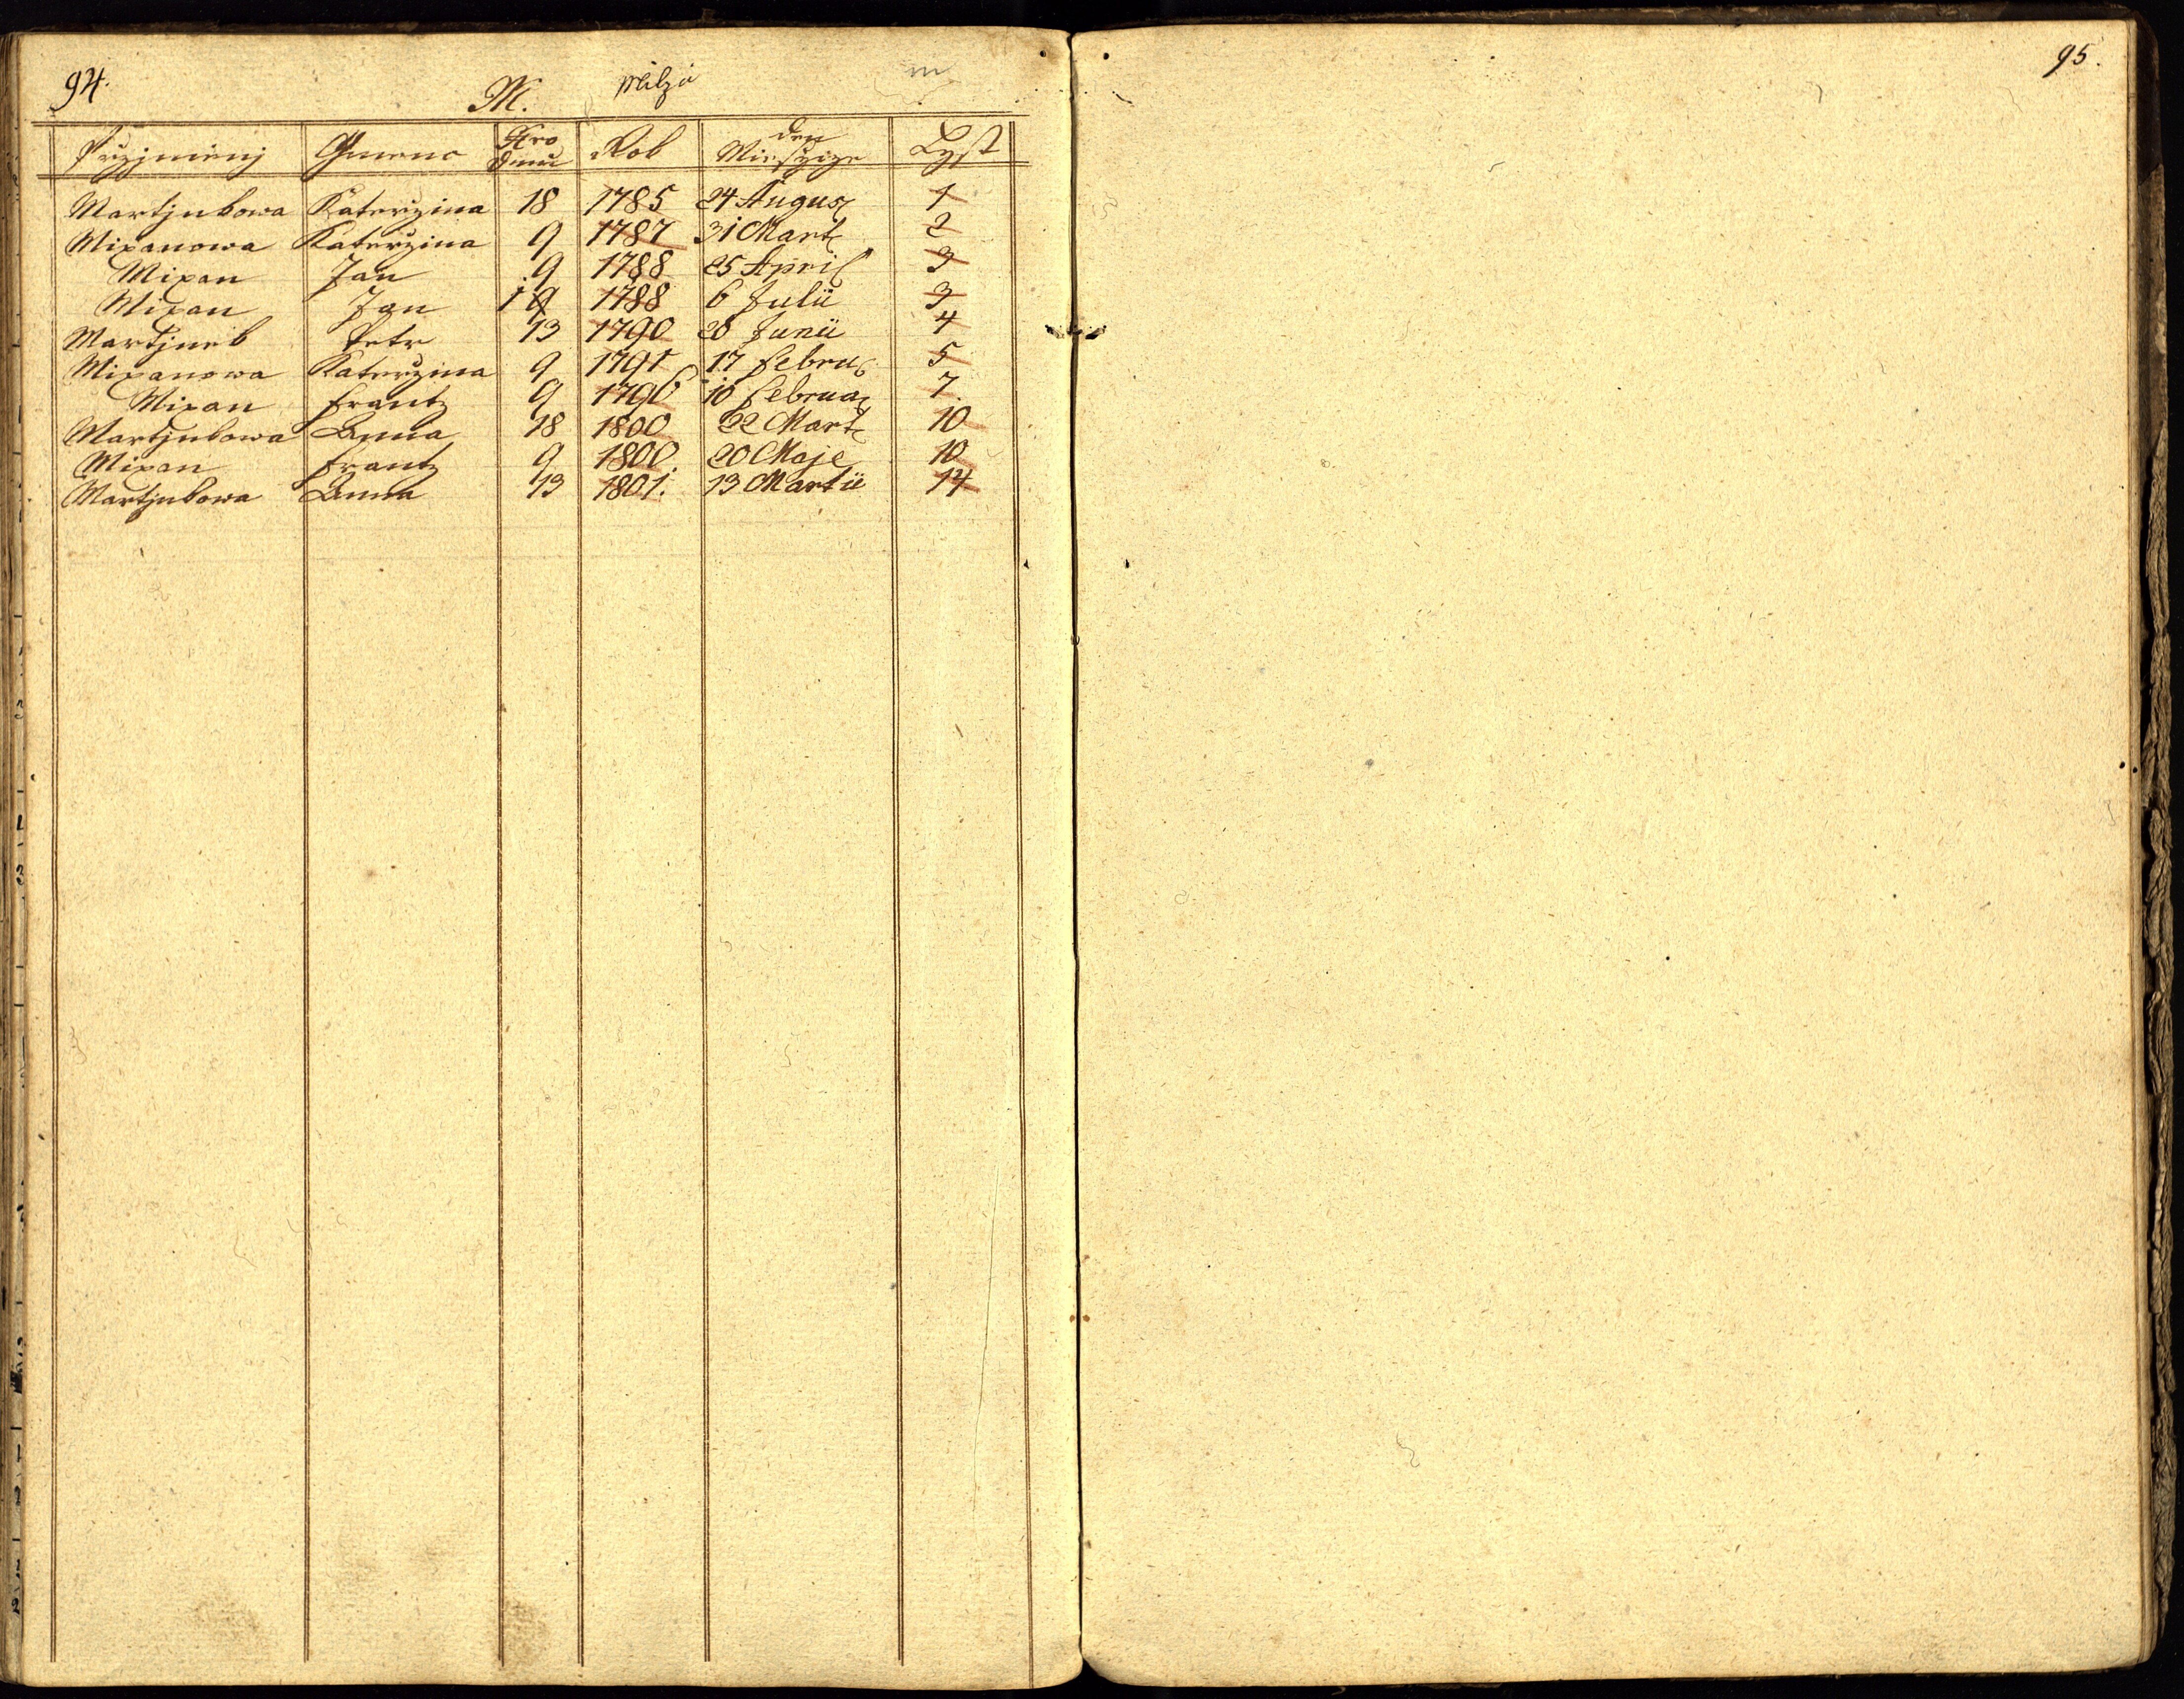 94.
M.
m
Przigmienj Gmeno Nro Domu Rok den Miesyce Lyst
Martjnkowa Katerzina 18 1785 24 August 1
Mixanowa Katerzina 9 1787 31 Mart 2
Mixan Jan 9 1788 25 April 3
Mixan Jan 1788 6 Julii 3
Martjnek Petr 13 1790 28 Junii 4
Mixanowa Katerzina 9 1791 17 Febru 5
Mixan Frantz 9 1796 10 Februar 7
Martjnkowa Anna 18 1800 22 Mart 10
Mixan Frantz 9 1800. 20 Maje 10
Martjnkowa Anna 13 1801. 13 Martii 14
95.